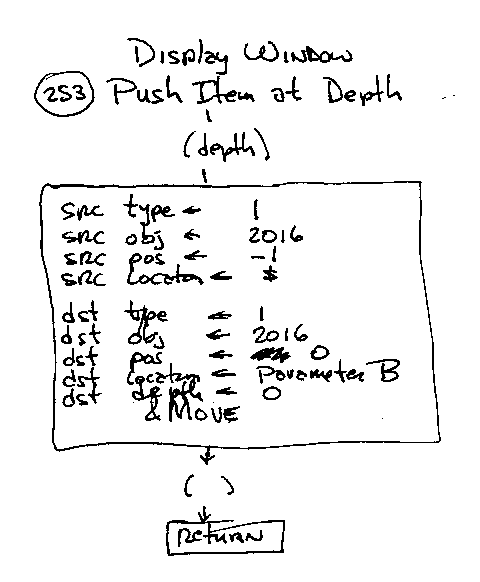 Display Window
253 Push Item at Depth
(depth)
src type ← 1
src obj ← 2016
src pos ← -1
src locator ← $
dst type ← 1
dst obj ← 2016
dst pos ← 0
dst locator ← Parameter B
dst depth ← 0
& MOVE
( )
RETURN